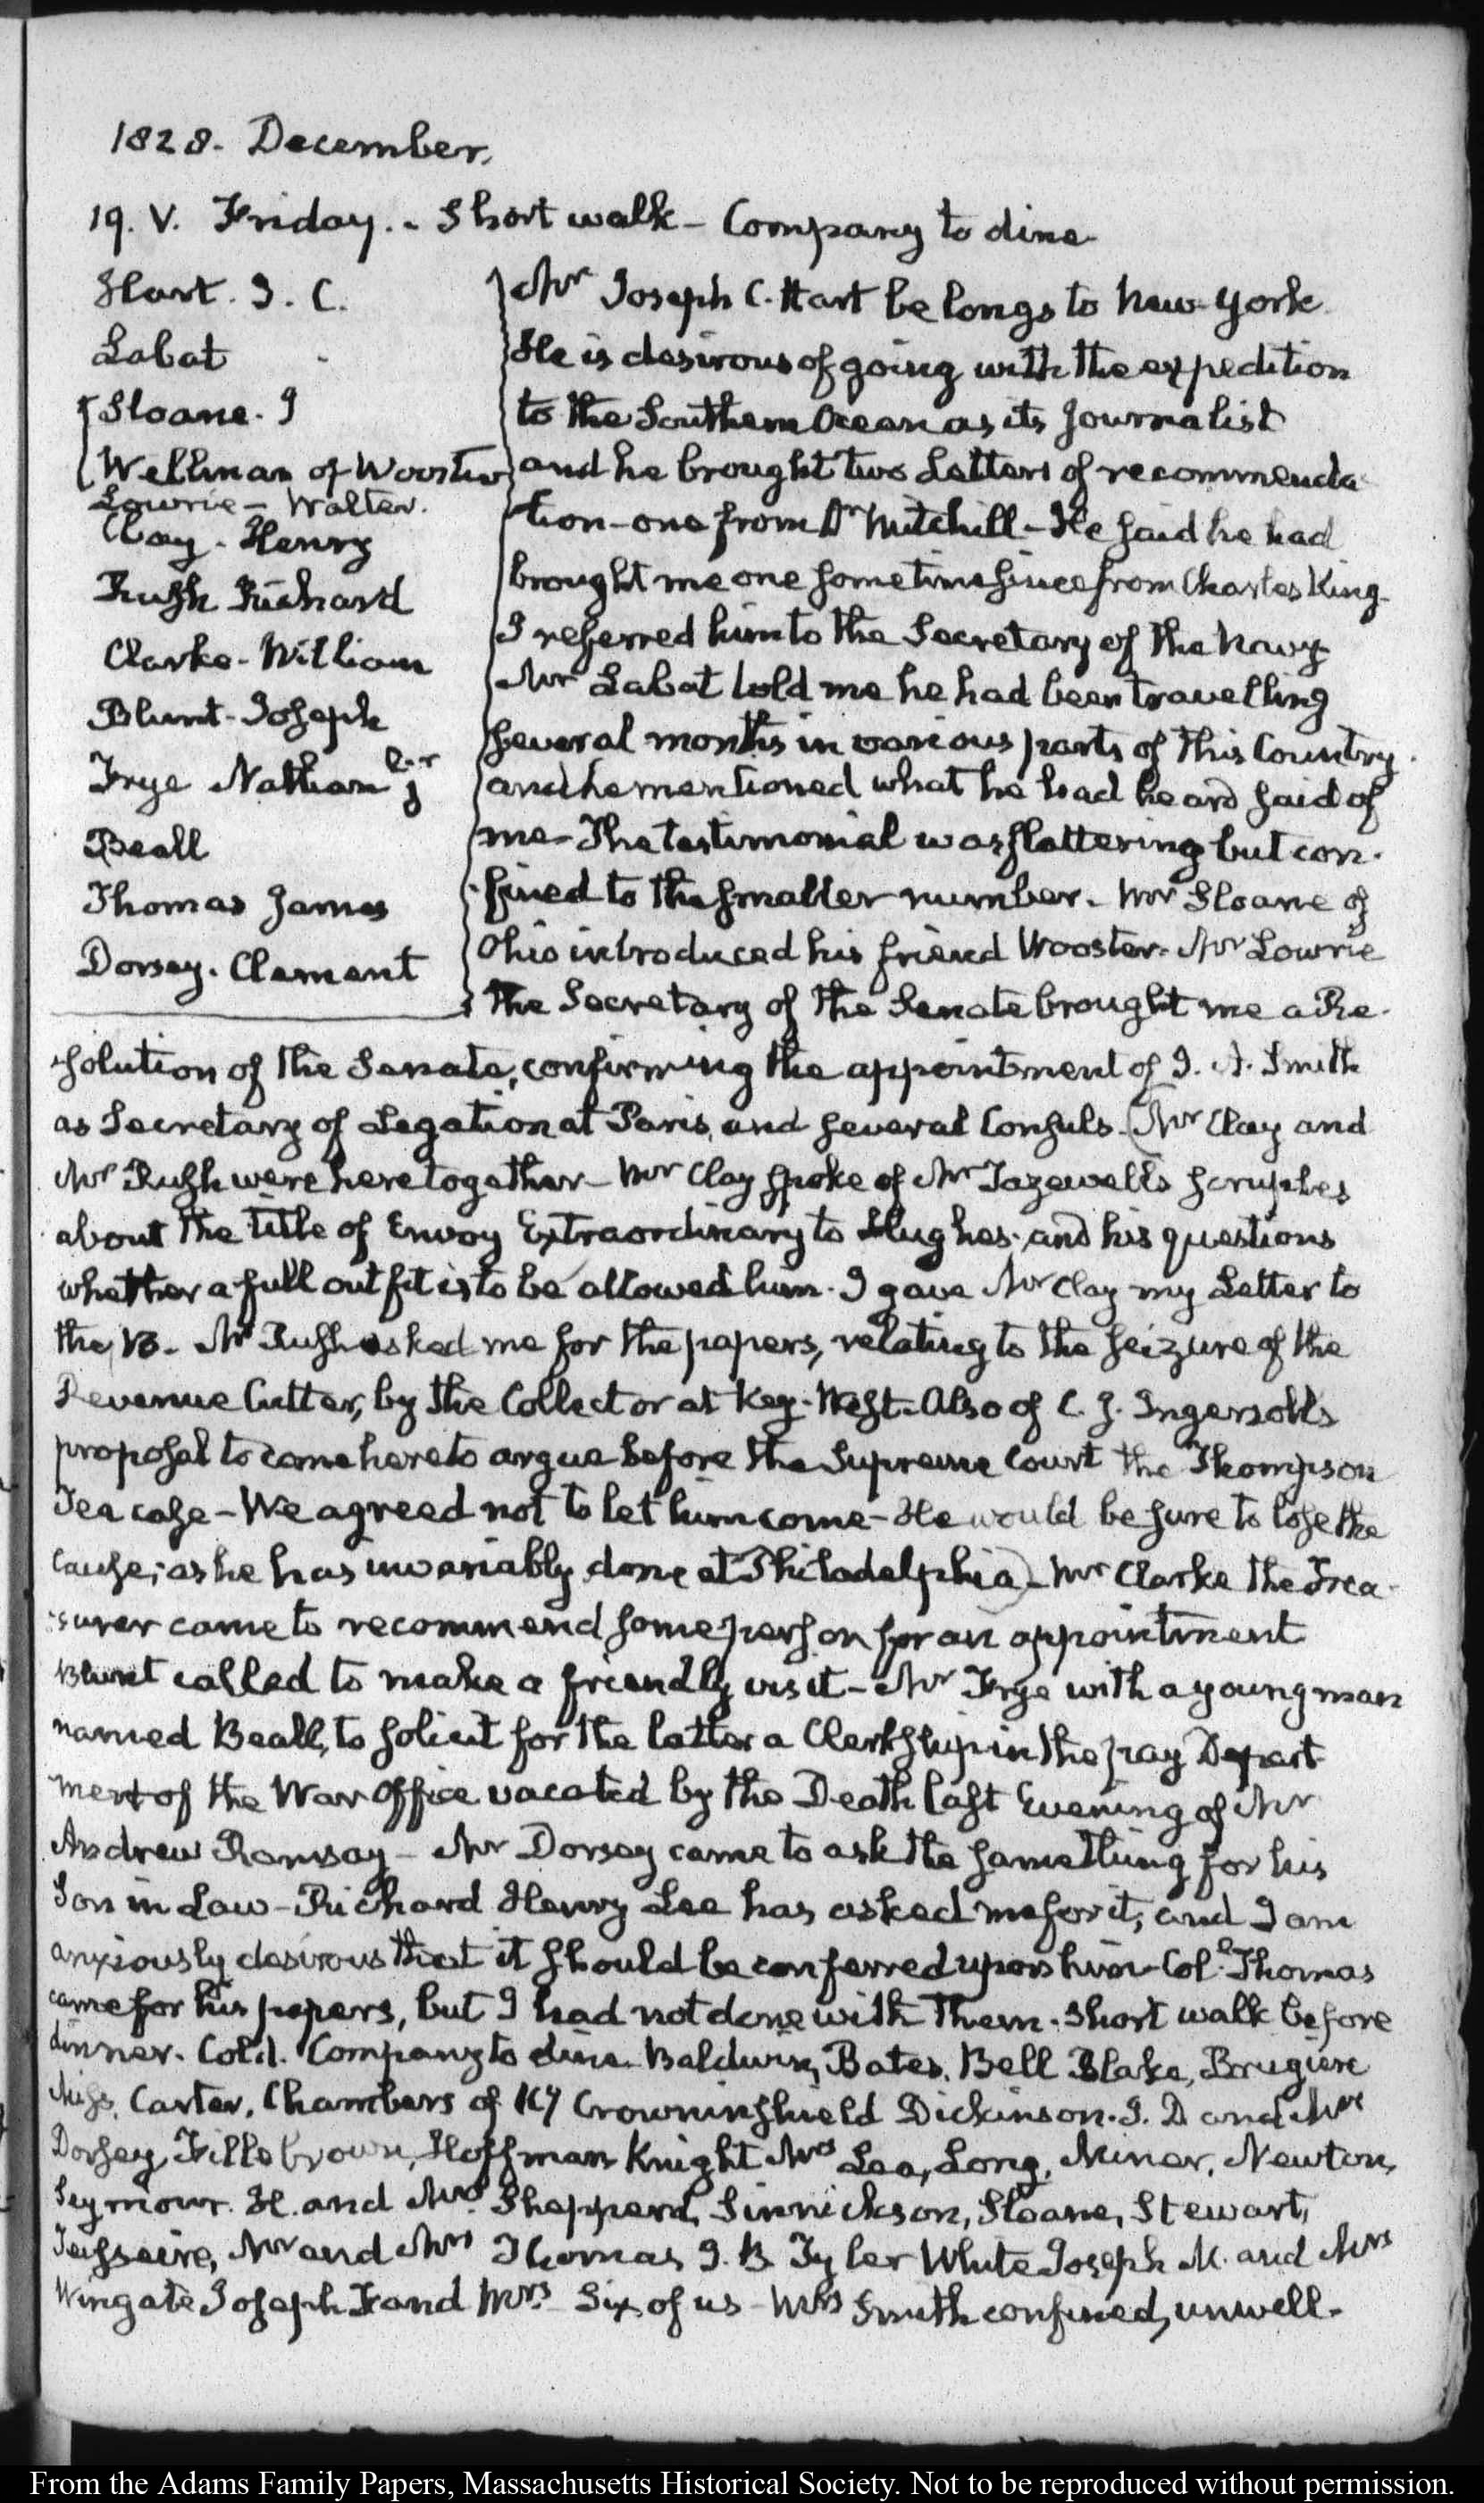 1828. December.
19. V. Friday. - Short walk - Company to dine
Hart. J. C.
Labat
Sloane. J
Wellman of Wooster
Lowrie - Walter.
Clay - Henry
Rush Richard
Clarke - William
Blunt - Joseph
Frye Nathan<sup>l</sup> jr
Beall
Thomas James
Dorsey. Clement
Mr Joseph C. Hart belongs to New-York
He is desirous of going with the expedition
to the Southern Ocean as its Journalist
and he brought two Letters of recommenda
tion - one from Dr Mitchill - He said he had
brought me one sometime since from Charles King -
I referred him to the Secretary of the Navy
Mr Labat told me he had been travelling
several months in various parts of this Country.
and he mentioned what he had heard said of
me - The testimonial was flattering but con-
-fined to the smaller number. Mr Sloane of
Ohio introduced his friend Wooster. Mr Lowrie
the Secretary of the Senate brought me a Re-
-solution of the Senate, confirming the appointment of J. A. Smith
as Secretary of Legation at Paris, and several Consuls - (Mr Clay and
Mr Rush were here together - Mr Clay spoke of Mr Tazewell's scruples
about the title of Envoy Extraordinary to Hughes. and his questions
whether a full outfit is to be allowed him. I gave Mr Clay my Letter to
the 13. Mr Rush asked me for the papers, relating to the seizure of the
Revenue Cutter, by the Collector at Key-West. Also of C. J. Ingersoll's
proposal to come here to argue before the Supreme Court the Thompson
Tea case - We agreed not to let him come - He would be sure to lose the
cause; as he has invariably done at Philadelphia) - Mr Clarke the Trea-
-surer came to recommend some person for an appointment
Blunt called to make a friendly visit - Mr Frye with a young man
named Beall, to solicit for the latter a Clerkship in the pay Depart
ment of the War Office vacated by the Death last Evening of Mr
Andrew Ramsay - Mr Dorsey came to ask the same thing for his
Son in Law - Richard Henry Lee has asked me for it, and I am
anxiously desirous that it should be conferred upon him - Col. Thomas
came for his papers, but I had not done with them. Short walk before
dinner. Cold. Company to dine. Baldwin, Bates, Bell Blake, Brugiere
Miss, Carter, Chambers of Ky Crowninshield Dickinson. J. D and Mrs
Dorsey, Fillebrown, Hoffman Knight Mrs Lea, Long, Miner, Newton,
Seymour. H. and Mrs Shepperd, Sinnickson, Sloane, Stewart,
Teissaire, Mr and Mrs Thomas J. B Tyler White Joseph M. and Mrs
Wingate Joseph F and Mrs Six of us - Mrs Smith confined, unwell.
From the Adams Family Papers, Massachusetts Historical Society. Not to be reproduced without permission.